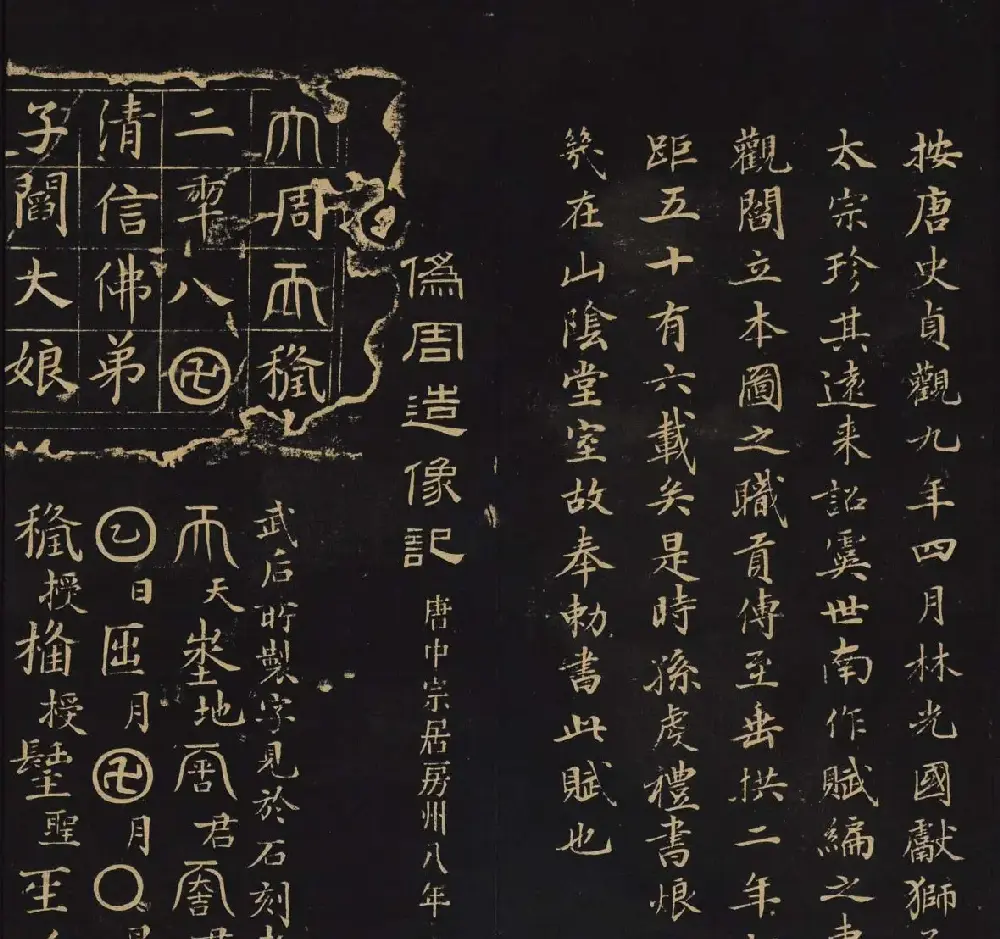 按唐史貞觀九年四月林光國獻獅
太宗珍其遠来詔虞世南作賦編之
觀閻立本圖之職貢傳至垂拱二年
距五十有六載矣是時孫虔禮書
在山陰堂室故奉勅書此賦也
偽周造像記 唐中宗居房州八年
大周𠀑𥠢
二𠡦八卍
清信佛弟
子閻大娘
武后所製字見於石刻
𠀑天埊地𠁈君
𡆠日𠥱月卍月〇
𥠢授授聖𤯔